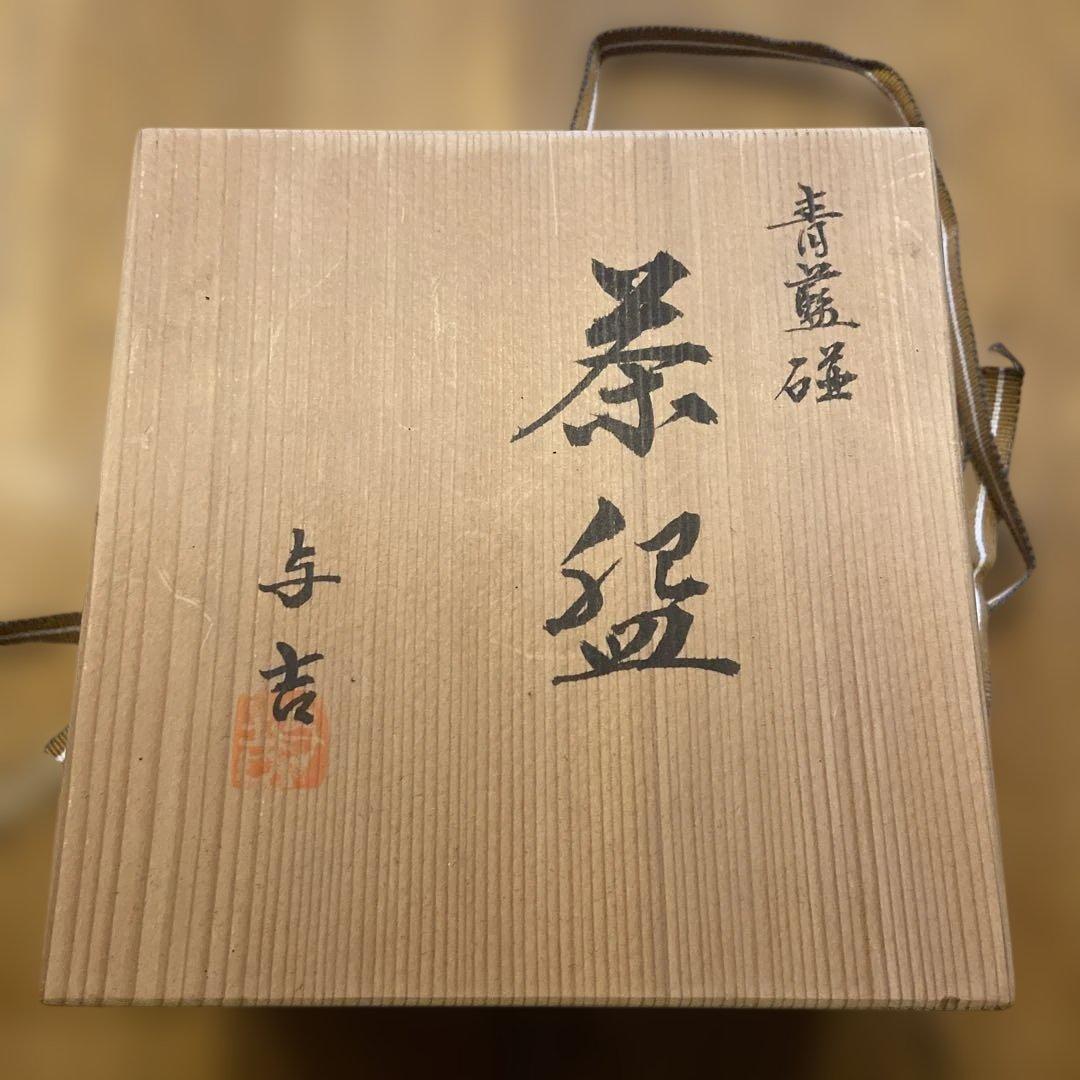 青藍碰
茶盌
与吉